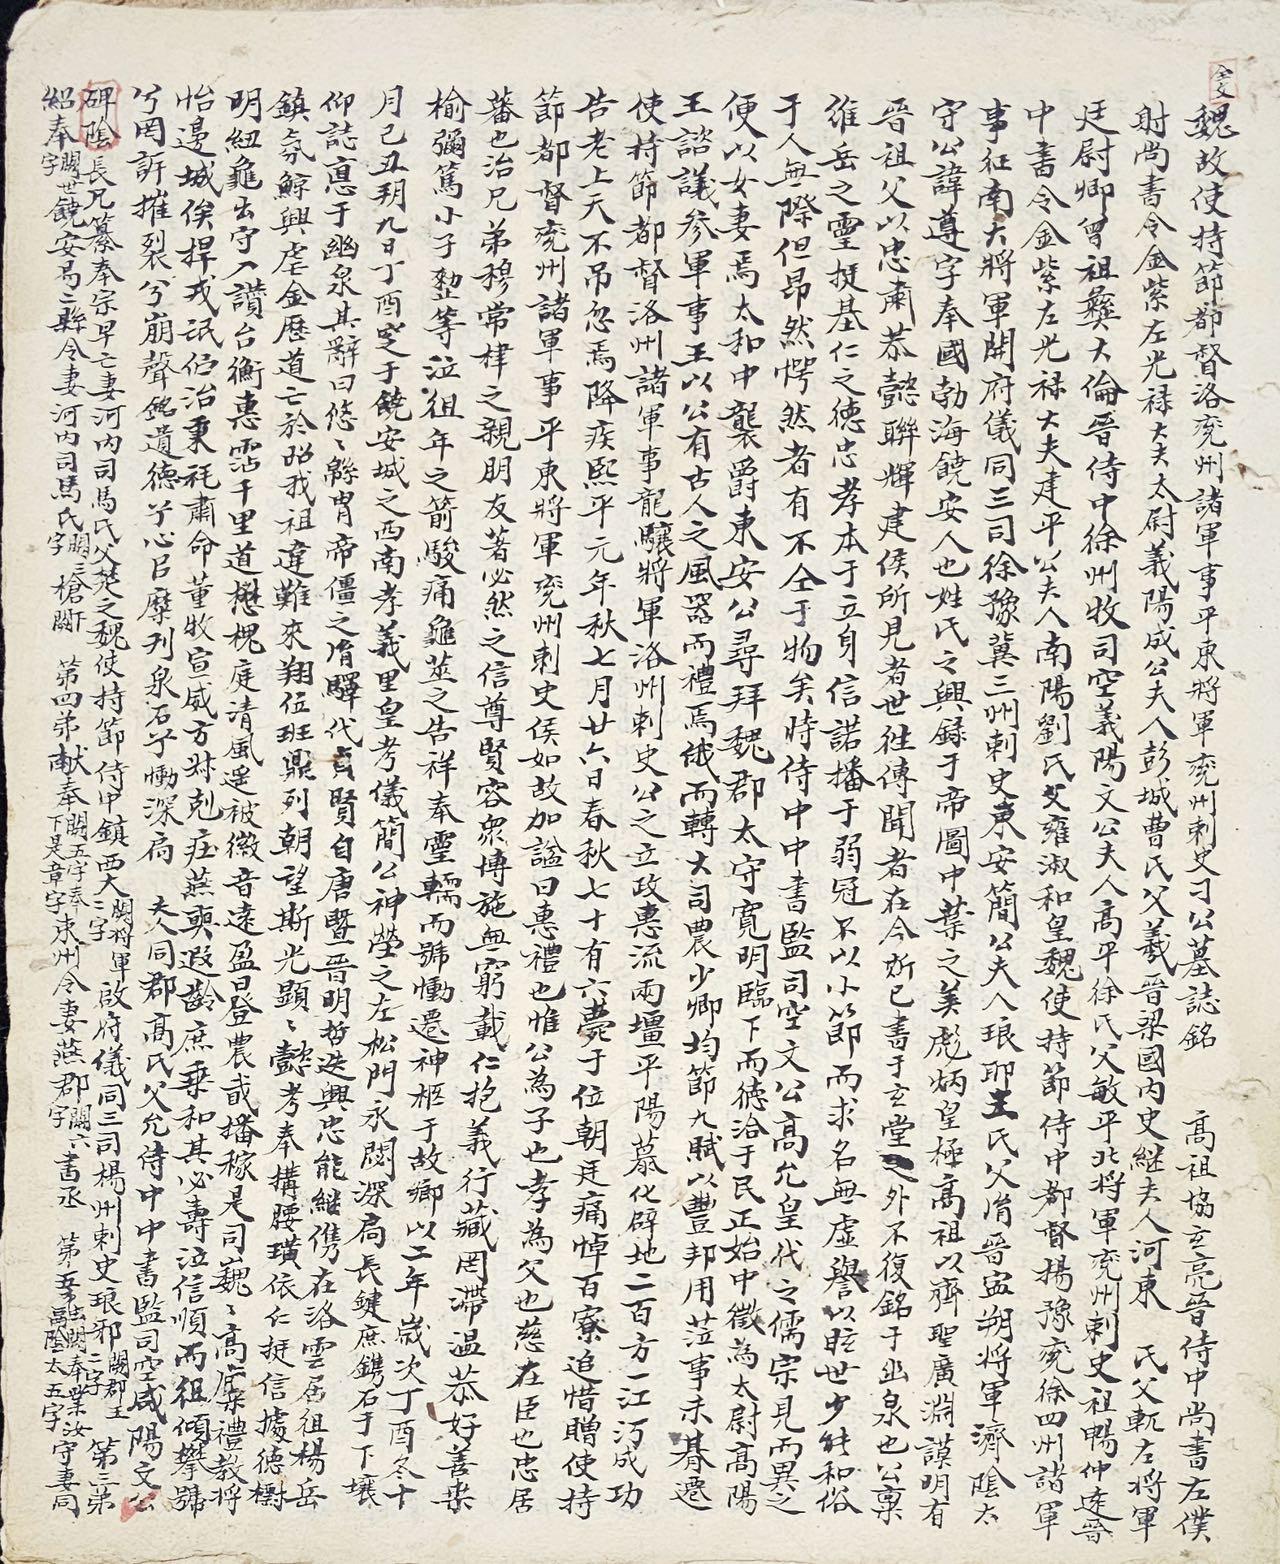 魏故使持節都督洛兗州諸軍事平東將軍兗州刺史刁公墓誌銘　高祖協玄亮晉侍中尚書左僕
射尚書令金紫左光祿大夫太尉義陽成公夫人彭城曹氏父羲晉梁國內史繼夫人河東　氏父軏左將軍
廷尉卿曾祖彝大倫晉侍中徐州牧司空義陽文公夫人高平徐氏父敏平北將軍兗州刺史祖暢仲遠晉
中書令金紫左光祿大夫建平公夫人南陽劉氏父雍淑和皇魏使持節侍中都督揚豫兗徐四州諸軍
事征南大將軍開府儀同三司徐豫冀三州刺史東安簡公夫人琅耶王氏父湑晉寍朔將軍濟陰太
守公諱遵字奉國勃海饒安人也姓氏之興錄于帝圖中葉之美彪炳皇極高祖以齊聖廣淵謨明有
晉祖父以忠肅恭懿聯輝建侯所見者世往傳聞者在今所已書于玄堂之外不復銘于幽泉也公稟
維岳之靈挺基仁之德忠孝本于立身信諾播于弱冠不以小節而求名無虛譽以眩世少能和俗
于人無際但昂然愕然者有不仝于物矣時侍中中書監司空文公高允皇代之儒宗見而異之
便以女妻焉太和中襲爵東安公尋拜魏郡太守寬明臨下而德洽于民正始中徵為太尉高陽
王諮議參軍事王以公有古人之風器而禮焉俄而轉大司農少卿均節九賦以豐邦用蒞事未朞遷
使持節都督洛州諸軍事龍驤將軍洛州刺史公之立政惠流兩壃平陽慕化辟地二百方一江沔成功
告老上天不吊忽焉降疾熙平元年秋七月廿六日春秋七十有六薨于位朝廷痛悼百寮追惜贈使持
節都督兗州諸軍事平東將軍兗州刺史侯如故加謚曰惠禮也惟公為子也孝為父也慈在臣也忠居
蕃也治兄弟穆常棣之親朋友著必然之信尊賢容衆博施無窮載仁抱義行藏罔滯溫恭好善桒
榆彌篤小子整等泣徂年之箭駿痛龜筮之告祥奉靈輀而號慟遷神柩于故鄉以二年歲次丁酉冬十
月己丑朔九日丁酉窆于饒安城之西南孝義里皇考儀簡公神塋之左松門永閟深扃長鍵庶鐫石于下壤
仰誌悳于幽泉其辭曰悠〻緜胄帝僵之胤驛代貞賢自唐暨晉明哲迭興忠能繼儁在洛雲居徂楊岳
鎮氛鯨興虐金歷道亡於昭我祖違難來翔位班鼎列朝望斯光顯〻懿考奉搆腰璜依仁挺信據德櫥
明紐龜出守入讚台衡惠霑千里道懋槐庭清風遥被徽音遠盈曰登農菆播稼是司巍〻高廪禮教將
怡邊城俟捍戎泯佇治秉秏肅命董牧宣威方對剋疰燕䎡遐齡庶乗和其必壽泣信順而徂傾攀號
兮罔訴摧裂兮崩聲銘遺德兮心㠯糜列泉石兮慟深扃　夫人同郡高氏父允侍中中書監司空咸陽文公
碑陰 長兄纂奉宗早亡妻河內司馬氏父楚之魏使持節侍中鎮西大闕二字將軍啟府儀同三司楊州刺史琅邪闕二字郡王　第三弟
紹奉闕字世饒安昜二縣令妻河內司馬氏闕三字槍闕　第四弟献奉闕五字奉下是章字東州令妻燕郡闕六字書丞　第五弟融闕奉業汝陰太守妻同